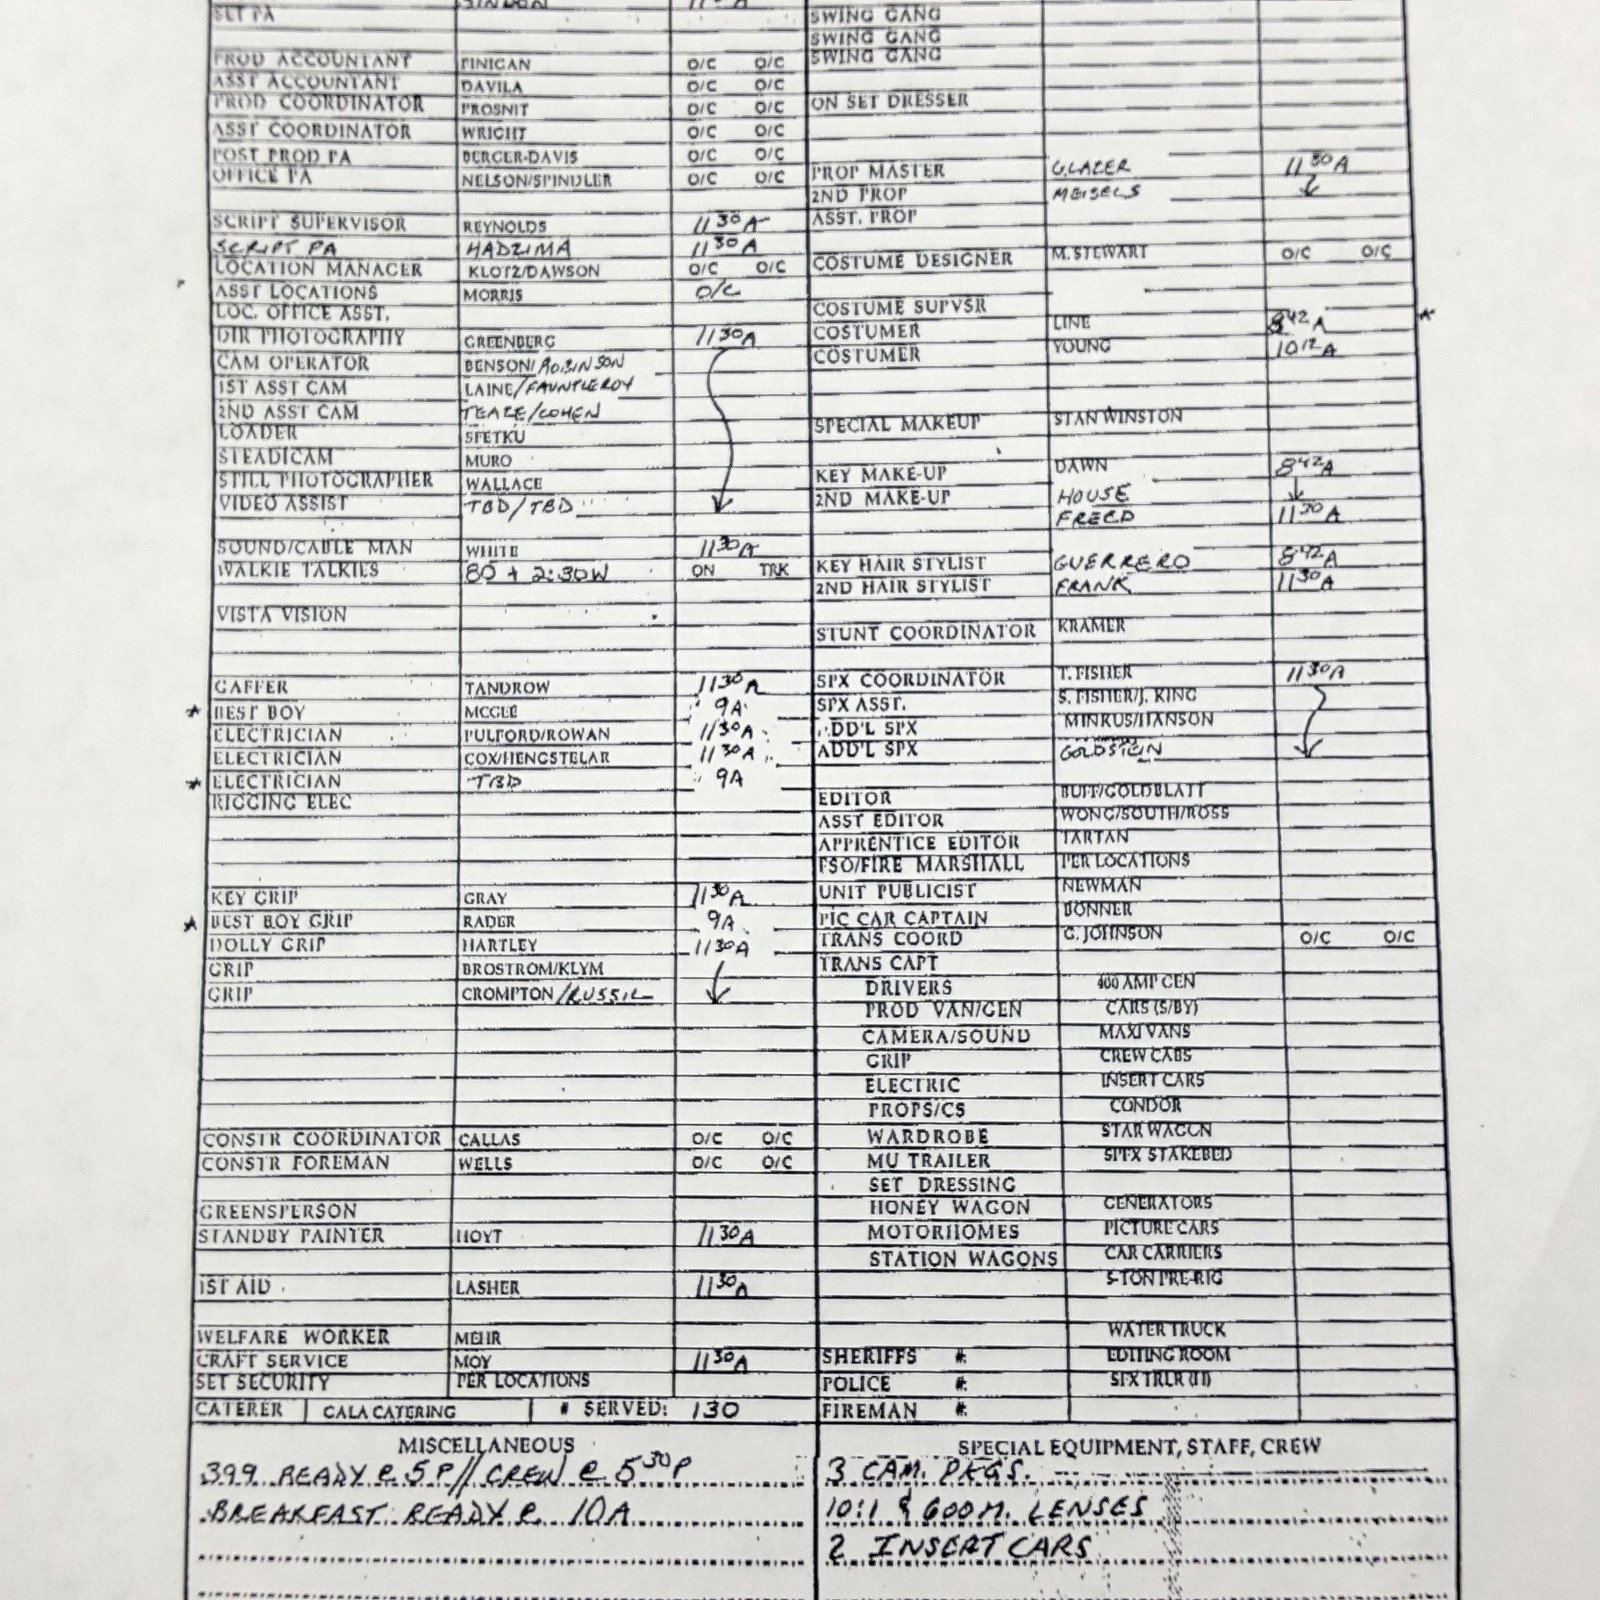 SET PA
PROD ACCOUNTANT FINIGAN O/C O/C
ASST ACCOUNTANT DAVILA O/C O/C
PROD COORDINATOR PROSNIT O/C O/C
ASST COORDINATOR WRIGHT O/C O/C
POST PROD PA BERGER-DAVIS O/C O/C
OFFICE PA NELSON/SPINDLER O/C O/C
SCRIPT SUPERVISOR REYNOLDS 11 30 A
SCRIPT PA HADZIMA 11 30 A
LOCATION MANAGER KLOTZ/DAWSON O/C O/C
ASST LOCATIONS MORRIS O/C
LOC. OFFICE ASST.
DIR PHOTOGRAPHY GREENBERG 11 30 A
CAM OPERATOR BENSON/ROBINSON
1ST ASST CAM LAINE/FAUNTLEROY
2ND ASST CAM TEAZE/COHEN
LOADER SFETKU
STEADICAM MURO
STILL PHOTOGRAPHER WALLACE
VIDEO ASSIST TBD/TBD
SOUND/CABLE MAN WHITE 11 30 A
WALKIE TALKIES 80 + 2:30W ON TRK
VISTA VISION
GAFFER TANDROW 11 30 A
* BEST BOY MCGEE 9A
ELECTRICIAN PULFORD/ROWAN 11 30 A
ELECTRICIAN COX/HENGSTELAR 11 30 A
* ELECTRICIAN TBD 9A
RIGGING ELEC
KEY GRIP GRAY 11 30 A
* BEST BOY GRIP RADER 9A
DOLLY GRIP HARTLEY 11 30 A
GRIP BROSTROM/KLYM
GRIP CROMPTON
CONSTR COORDINATOR CALLAS O/C O/C
CONSTR FOREMAN WELLS O/C O/C
GREENSPERSON
STANDBY PAINTER HOYT 11 30 A
1ST AID LASHER 11 30 A
WELFARE WORKER MEHR
CRAFT SERVICE MOY 11 30 A
SET SECURITY PER LOCATIONS
CATERER GALA CATERING # SERVED: 130
SWING GANG
SWING GANG
SWING GANG
ON SET DRESSER
PROP MASTER GLAZER 11 30 A
2ND PROP MEISELS
ASST. PROP
COSTUME DESIGNER M. STEWART O/C O/C
COSTUME SUPVSR
COSTUMER LINE 8 42 A *
COSTUMER YOUNG 10 12 A
SPECIAL MAKEUP STAN WINSTON
KEY MAKE-UP DAWN 8 42 A
2ND MAKE-UP HOUSE
FREED 11 30 A
KEY HAIR STYLIST GUERRERO 8 42 A
2ND HAIR STYLIST FRANK 11 30 A
STUNT COORDINATOR KRAMER
SPX COORDINATOR T. FISHER 11 30 A
SPX ASST. S. FISHER/J. KING
ADD'L SPX MINKUS/HANSON
ADD'L SPX GOLDSTEIN
EDITOR BUFF/GOLDBLATT
ASST EDITOR WONG/SOUTH/ROSS
APPRENTICE EDITOR TARTAN
FSO/FIRE MARSHALL PER LOCATIONS
UNIT PUBLICIST NEWMAN
PIC CAR CAPTAIN BONNER
TRANS COORD G. JOHNSON O/C O/C
TRANS CAPT
DRIVERS 400 AMP GEN
PROD VAN/GEN CARS (S/BY)
CAMERA/SOUND MAXI VANS
GRIP CREW CABS
ELECTRIC INSERT CARS
PROPS/CS CONDOR
WARDROBE STAR WAGON
MU TRAILER SPFX STAKEBED
SET DRESSING
HONEY WAGON GENERATORS
MOTORHOMES PICTURE CARS
STATION WAGONS CAR CARRIERS
5-TON PRE-RIG
WATER TRUCK
SHERIFFS # EDITING ROOM
POLICE #
FIREMAN #
MISCELLANEOUS
399 READY @ 5P // CREW @ 5 30 P
BREAKFAST READY @ 10A
SPECIAL EQUIPMENT, STAFF, CREW
3 CAM. PKGS.
10:1 & 600M. LENSES
2 INSERT CARS